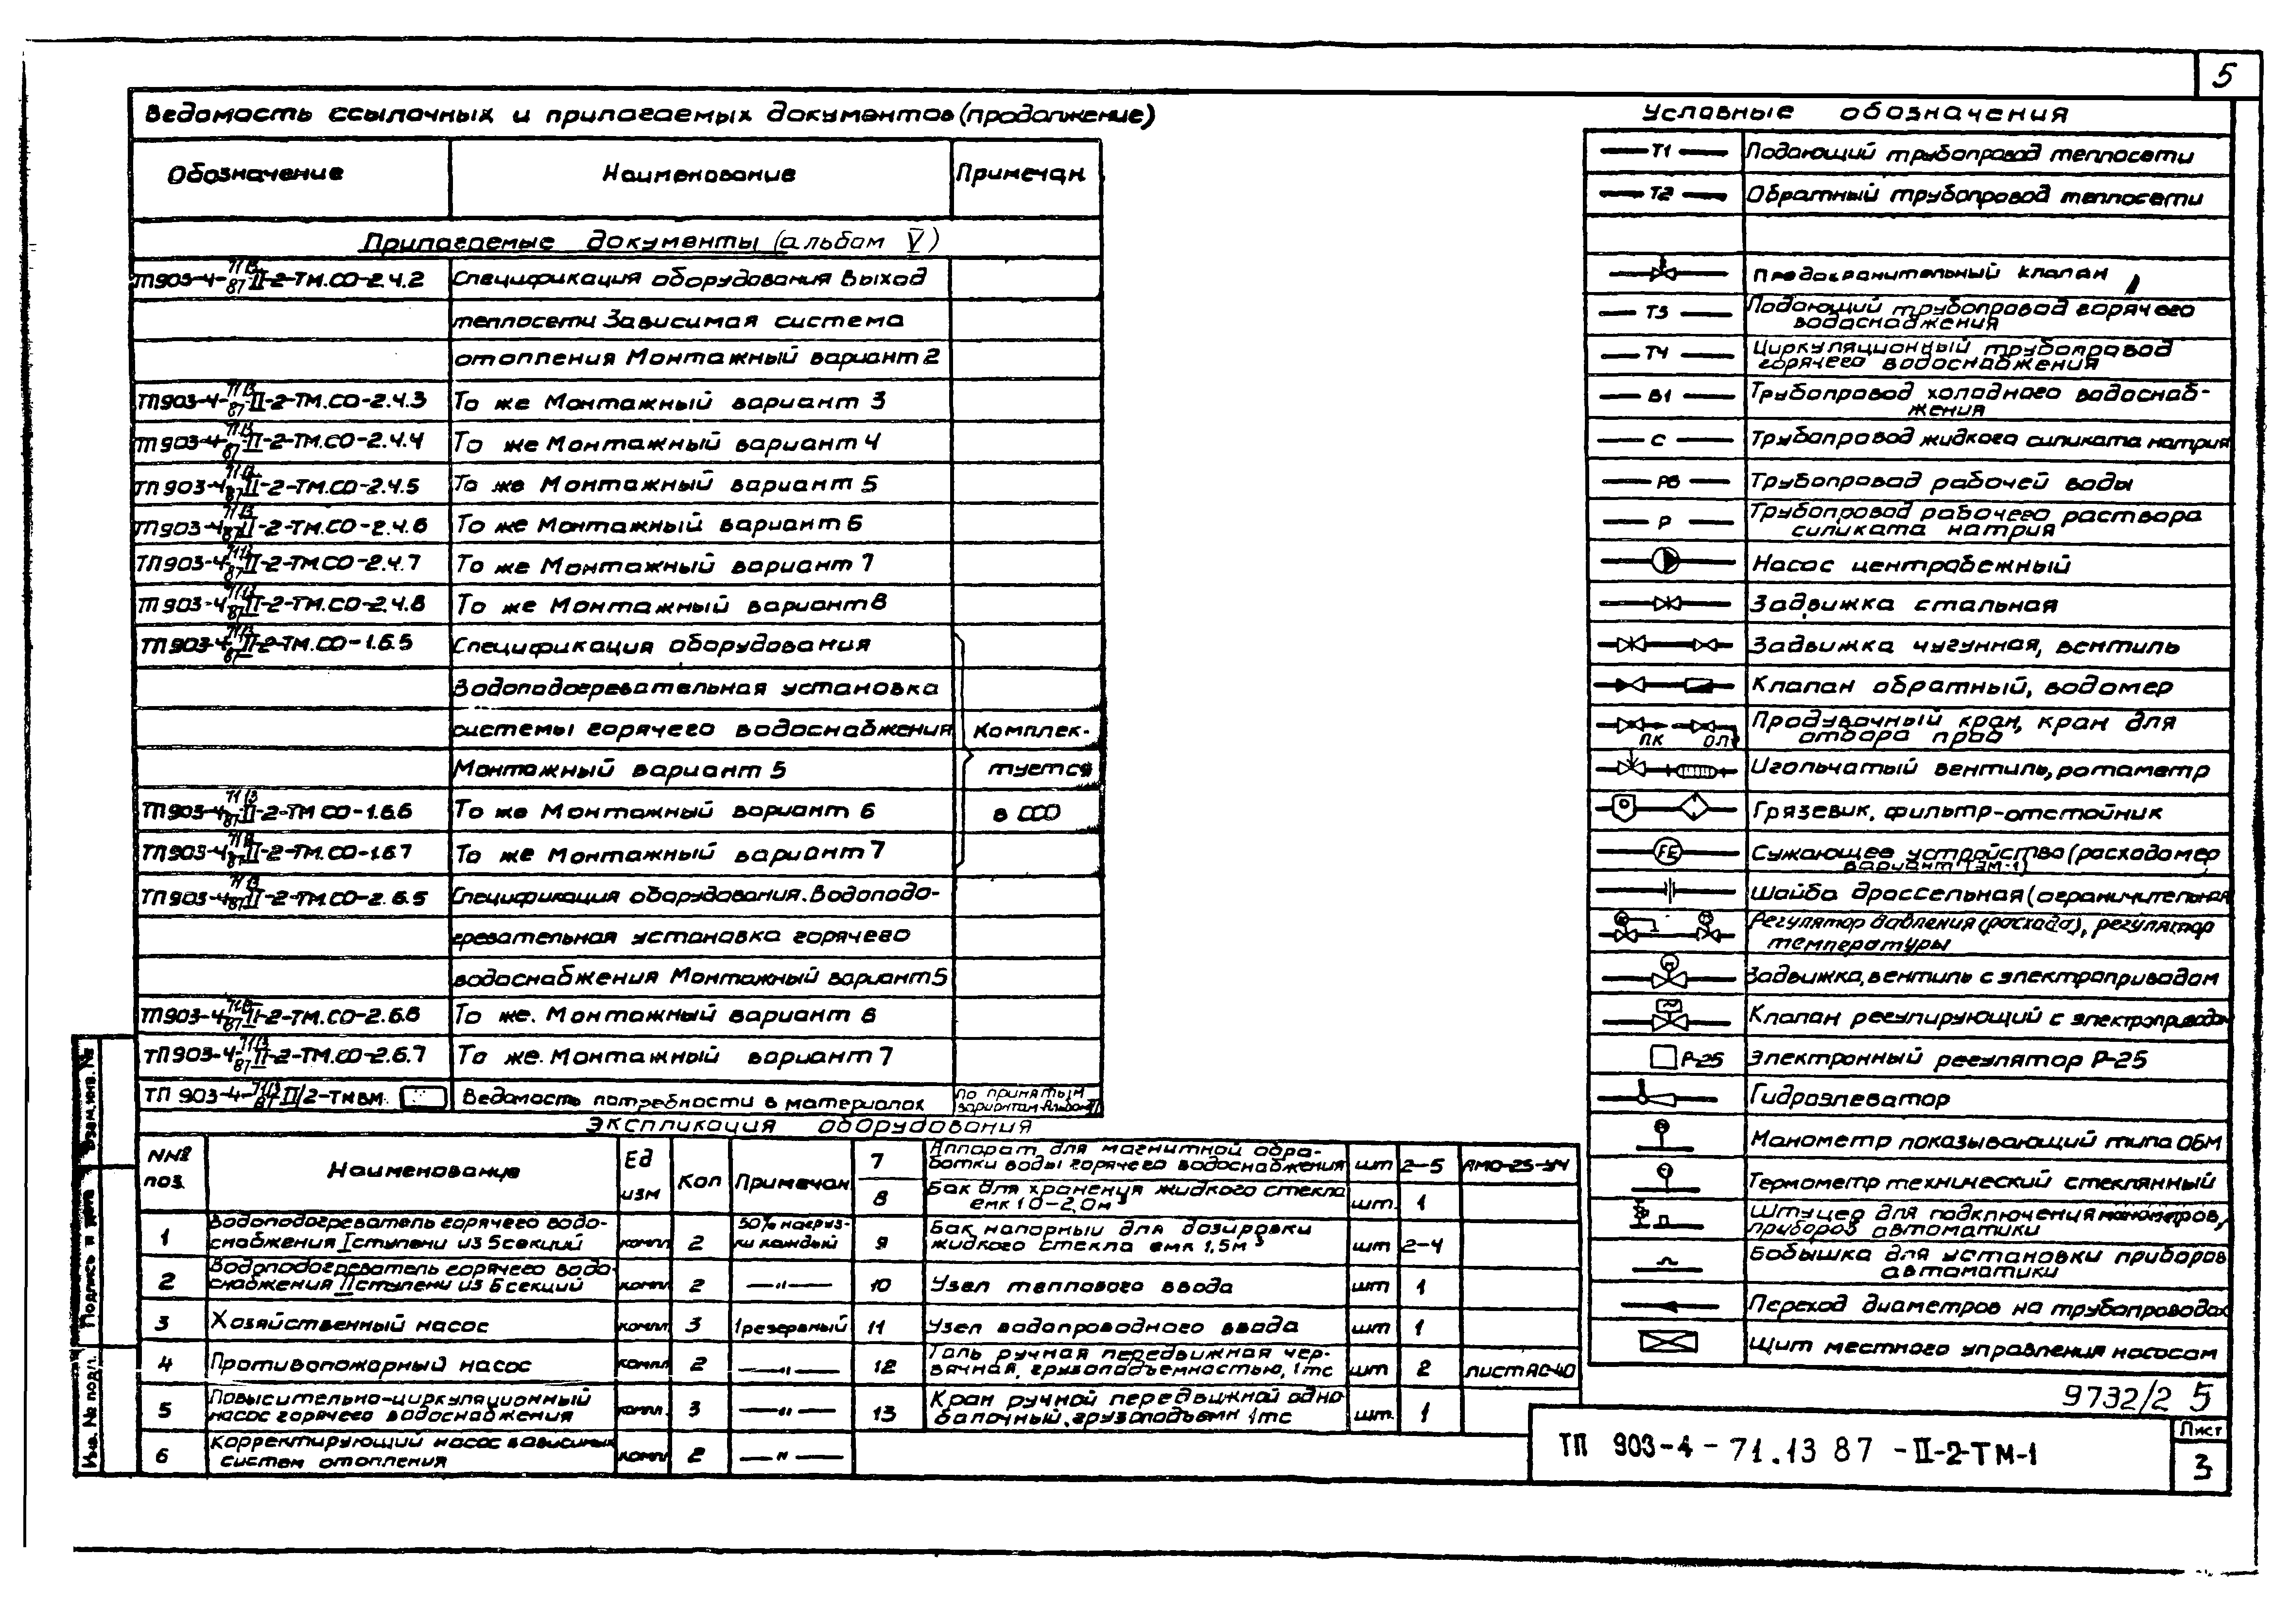 5
Ведомость ссылочных и прилагаемых документов (продолжение)
Обозначение Наименование Примечан
Прилагаемые документы (альбом V)
ТП903-4-71.13.87-II-2-ТМ.СО-2.4.2 Спецификация оборудования Выход
теплосети Зависимая система
отопления Монтажный вариант 2
ТП903-4-71.13.87-II-2-ТМ.СО-2.4.3 То же Монтажный вариант 3
ТП903-4-71.13.87-II-2-ТМ.СО-2.4.4 То же Монтажный вариант 4
ТП903-4-71.13.87-II-2-ТМ.СО-2.4.5 То же Монтажный вариант 5
ТП903-4-71.13.87-II-2-ТМ.СО-2.4.6 То же Монтажный вариант 6
ТП903-4-71.13.87-II-2-ТМ.СО-2.4.7 То же Монтажный вариант 7
ТП903-4-71.13.87-II-2-ТМ.СО-2.4.8 То же Монтажный вариант 8
ТП903-4-71.13.87-II-2-ТМ.СО-1.6.5 Спецификация оборудования
Водоподогревательная установка
системы горячего водоснабжения Комплек-
Монтажный вариант 5 туется
ТП903-4-71.13.87-II-2-ТМ СО-1.6.6 То же Монтажный вариант 6 в ССО
ТП903-4-71.13.87-II-2-ТМ.СО-1.6.7 То же Монтажный вариант 7
ТП903-4-71.13.87-II-2-ТМ.СО-2.6.5 Спецификация оборудования. Водоподо-
гревательная установка горячего
водоснабжения Монтажный вариант 5
ТП903-4-71.13.87-II-2-ТМ.СО-2.6.6 То же. Монтажный вариант 6
ТП903-4-71.13.87-II-2-ТМ.СО-2.6.7 То же. Монтажный вариант 7
ТП 903-4-71.13.87-II/2-ТМ ВМ. Ведомость потребности в материалах По принятым
вариантам Альбом
Экспликация оборудования
№№ поз. Наименование Ед изм Кол Примечан
1 Водоподогреватель горячего водо-
снабжения I ступени из 5 секций компл 2 50% нагруз-
ки каждый
2 Водоподогреватель горячего водо-
снабжения II ступени из 6 секций компл 2 —"—
3 Хозяйственный насос компл 3 1 резервный
4 Противопожарный насос компл 2 —"—
5 Повысительно-циркуляционный
насос горячего водоснабжения компл. 3 —"—
6 Корректирующий насос зависимых
систем отопления компл 2 —"—
7 Аппарат для магнитной обра-
ботки воды горячего водоснабжения шт 2-5 АМО-25-УЧ
8 Бак для хранения жидкого стекла
емк 1 0-2,0м³ шт. 1
9 Бак напорный для дозировки
жидкого стекла емк 1,5м³ шт 2-4
10 Узел теплового ввода шт 1
11 Узел водопроводного ввода шт 1
12 Таль ручная передвижная чер-
вячная, грузоподъемностью, 1тс шт 2 лист АС-40
13 Кран ручной передвижной одно
балочный, грузоподъемн 1тс шт. 1
Условные обозначения
Т1 Подающий трубопровод теплосети
Т2 Обратный трубопровод теплосети
Предохранительный клапан
Т3 Подающий трубопровод горячего
водоснабжения
Т4 Циркуляционный трубопровод
горячего водоснабжения
В1 Трубопровод холодного водоснаб-
жения
С Трубопровод жидкого силиката натрия
РВ Трубопровод рабочей воды
Р Трубопровод рабочего раствора
силиката натрия
Насос центробежный
Задвижка стальная
Задвижка чугунная, вентиль
Клапан обратный, водомер
Продувочный кран, кран для
отбора проб
ПК ОП
Игольчатый вентиль, ротаметр
Грязевик, фильтр-отстойник
FE Сужающее устройство (расходомер
вариант ТЭМ-1)
Шайба дроссельная (ограничительная
Регулятор давления (расхода), регулятор
температуры
Задвижка, вентиль с электроприводом
Клапан регулирующий с электроприводом
Р-25 Электронный регулятор Р-25
Гидроэлеватор
Манометр показывающий типа ОБМ
Термометр технический стеклянный
Штуцер для подключения манометров,
приборов автоматики
Бобышка для установки приборов
автоматики
Переход диаметров на трубопроводах
Щит местного управления насосом
9732/2 5
ТП 903-4-71.13 87 -II-2-ТМ-1
Лист
3
Взам. инв. №
Подпись и дата
Инв. № подл.